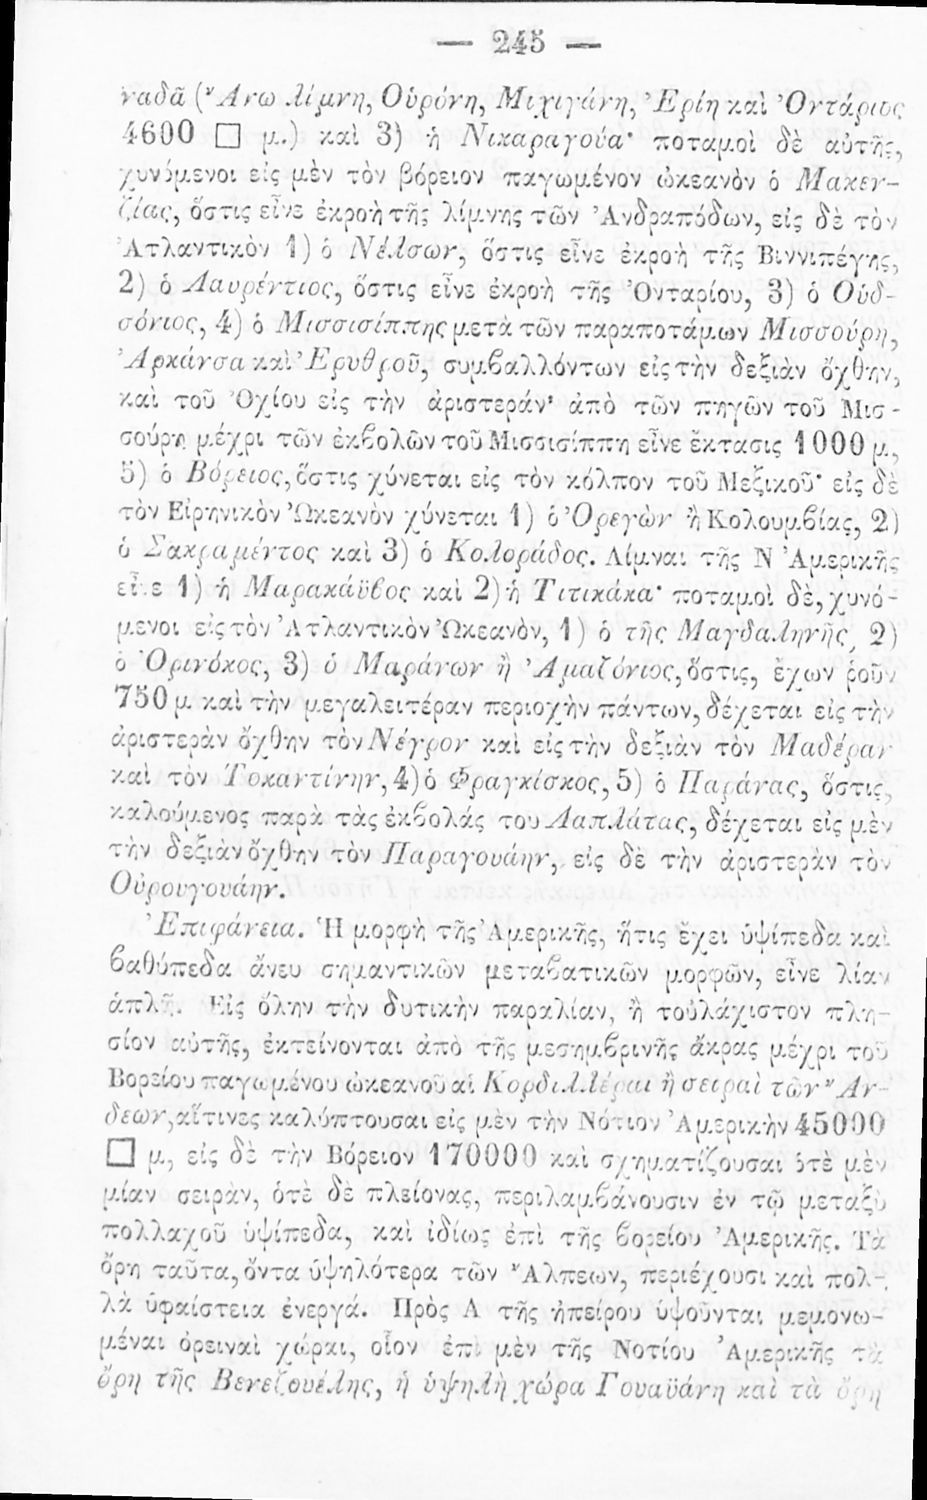 — 245 —
ναδᾶ (Ἄνω λίμνη, Οὑρόνη, Μιχιγάνη, Ἐρίη καὶ Ὀντάριος
4600 □ μ.) καὶ 3) ἡ Νικαραγούα· ποταμοὶ δὲ αὐτῆς,
χυνόμενοι εἰς μὲν τὸν βόρειον παγωμένον ὠκεανὸν ὁ Μακεν-
ζίας, ὅστις εἶνε ἐκροὴ τῆς λίμνης τῶν Ἀνδραπόδων, εἰς δὲ τὸν
Ἀτλαντικὸν 1) ὁ Νέλσων, ὅστις εἶνε ἐκροὴ τῆς Βιννιπέγης,
2) ὁ Λαυρέντιος, ὅστις εἶνε ἐκροὴ τῆς Ὀνταρίου, 3) ὁ Οὑδ-
σόνιος, 4) ὁ Μισσισίππης μετὰ τῶν παραποτάμων Μισσούρη,
Ἀρκάνσα καὶ Ἐρυθροῦ, συμβαλλόντων εἰς τὴν δεξιὰν ὄχθην,
καὶ τοῦ Ὀχίου εἰς τὴν ἀριστεράν· ἀπὸ τῶν πηγῶν τοῦ Μισ-
σούρη μέχρι τῶν ἐκβολῶν τοῦ Μισσισίππη εἶνε ἔκτασις 1000 μ,
5) ὁ Βόρειος, ὅστις χύνεται εἰς τὸν κόλπον τοῦ Μεξικοῦ· εἰς δὲ
τὸν Εἰρηνικὸν Ὠκεανὸν χύνεται 1) ὁ Ὀρεγὼν ἢ Κολουμβίας, 2)
ὁ Σακραμέντος καὶ 3) ὁ Κολοράδος. Λίμναι τῆς Ν Ἀμερικῆς
εἶνε 1) ἡ Μαρακάϋβος καὶ 2) ἡ Τιτικάκα· ποταμοὶ δὲ, χυνό-
μενοι εἰς τὸν Ἀτλαντικὸν Ὠκεανὸν, 1) ὁ τῆς Μαγδαληνῆς, 2)
ὁ Ὀρινόκος, 3) ὁ Μαράνων ἢ Ἀμαζόνιος, ὅστις, ἔχων ῥοῦν
750 μ. καὶ τὴν μεγαλειτέραν περιοχὴν πάντων, δέχεται εἰς τὴν
ἀριστερὰν ὄχθην τὸν Νέγρον καὶ εἰς τὴν δεξιὰν τὸν Μαδέραν
καὶ τὸν Τοκαντίνην, 4) ὁ Φραγκίσκος, 5) ὁ Παράνας, ὅστις,
καλούμενος παρὰ τὰς ἐκβολάς του Λαπλάτας, δέχεται εἰς μὲν
τὴν δεξιὰν ὄχθην τὸν Παραγουάην, εἰς δὲ τὴν ἀριστερὰν τὸν
Οὐρουγουάην.
Ἐπιφάνεια. Ἡ μορφὴ τῆς Ἀμερικῆς, ἥτις ἔχει ὑψίπεδα καὶ
βαθύπεδα ἄνευ σημαντικῶν μεταβατικῶν μορφῶν, εἶνε λίαν
ἁπλῆ. Εἰς ὅλην τὴν δυτικὴν παραλίαν, ἢ τοὐλάχιστον πλη-
σίον αὐτῆς, ἐκτείνονται ἀπὸ τῆς μεσημβρινῆς ἄκρας μέχρι τοῦ
Βορείου παγωμένου ὠκεανοῦ αἱ Κορδιλλέραι ἢ σειραὶ τῶν Ἄν-
δεων, αἵτινες καλύπτουσαι εἰς μὲν τὴν Νότιον Ἀμερικὴν 45000
□ μ, εἰς δὲ τὴν Βόρειον 170000 καὶ σχηματίζουσαι ὁτὲ μὲν
μίαν σειρὰν, ὁτὲ δὲ πλείονας, περιλαμβάνουσιν ἐν τῷ μεταξὺ
πολλαχοῦ ὑψίπεδα, καὶ ἰδίως ἐπὶ τῆς βορείου Ἀμερικῆς. Τὰ
ὄρη ταῦτα, ὄντα ὑψηλότερα τῶν Ἄλπεων, περιέχουσι καὶ πολ-
λὰ ὑφαίστεια ἐνεργά. Πρὸς Α τῆς ἠπείρου ὑψοῦνται μεμονω-
μέναι ὀρειναὶ χώραι, οἷον ἐπὶ μὲν τῆς Νοτίου Ἀμερικῆς τὰ
ὄρη τῆς Βενεζουέλης, ἡ ὑψηλὴ χώρα Γουαϋάνη καὶ τὰ ὄρη